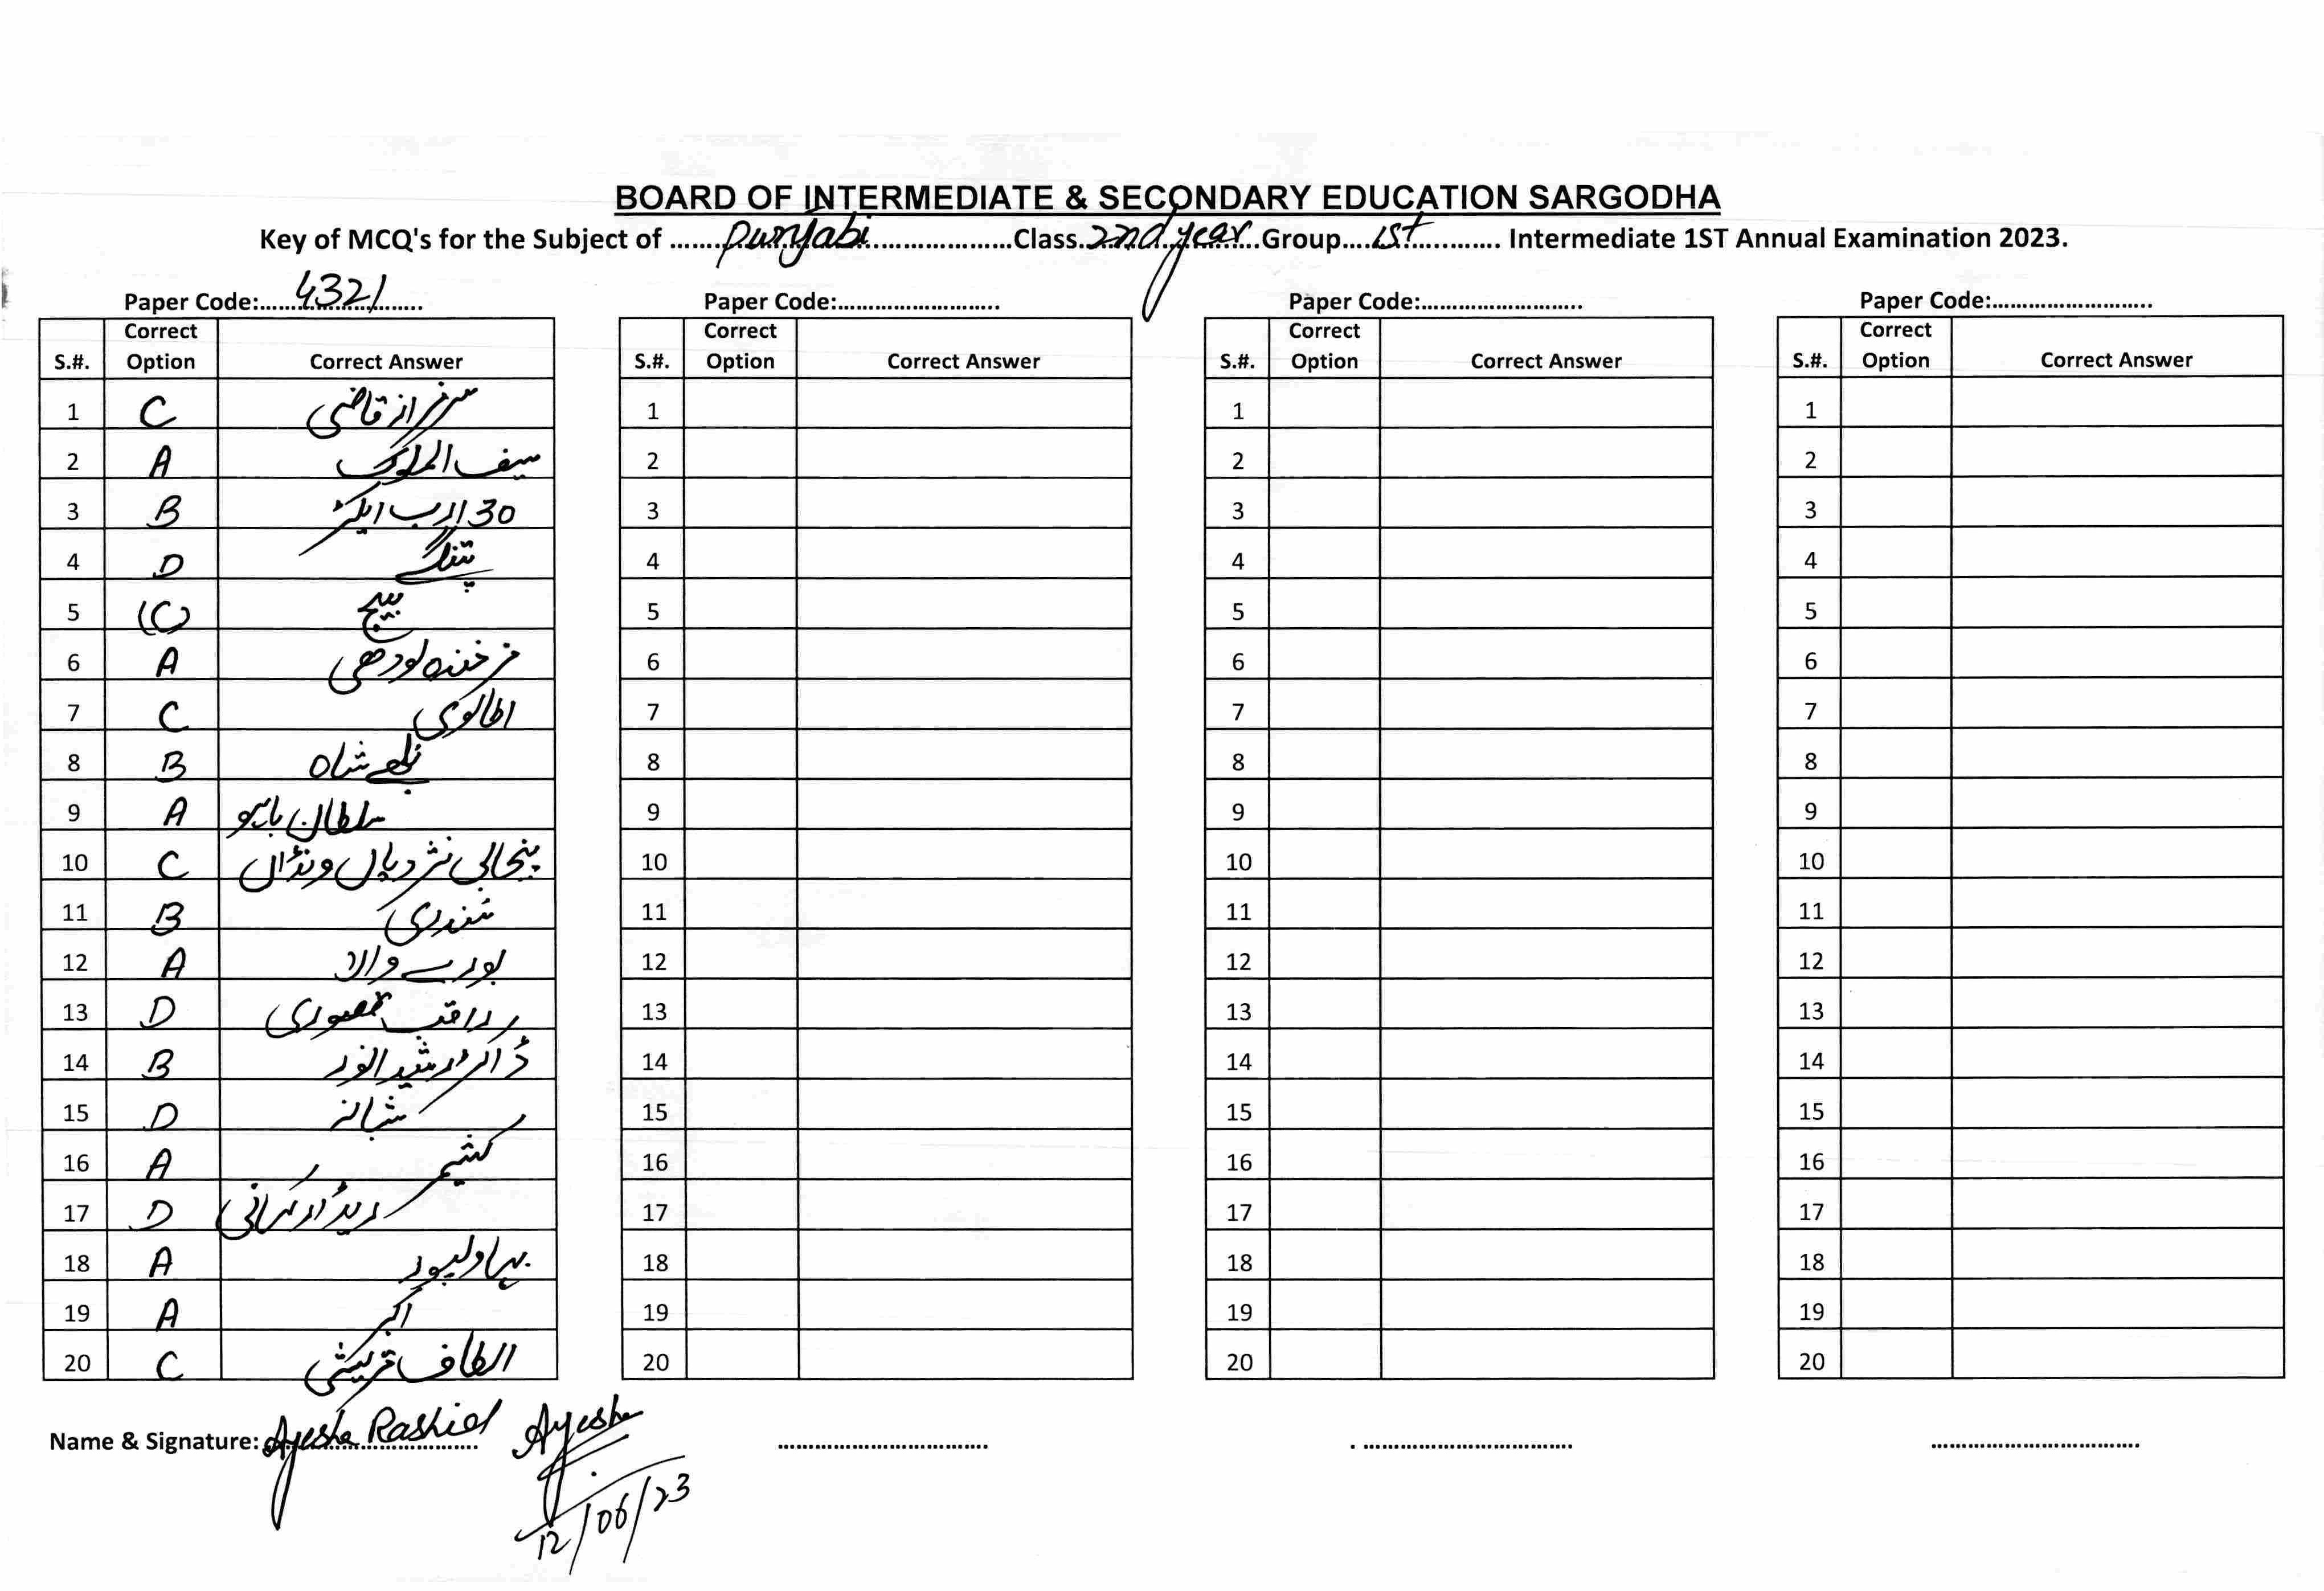 BOARD OF INTERMEDIATE & SECONDARY EDUCATION SARGODHA
Key of MCQ's for the Subject of .......Punjabi.....................Class..2nd year.Group.....1st........... Intermediate 1ST Annual Examination 2023.
Paper Code:......4321......
S.#. Correct Option Correct Answer
1 C سرفراز قاضی
2 A سیف الملوک
3 B 30 ارب ایکڑ
4 D پتنگ
5 (C) بیج
6 A فرخندہ لودھی
7 C اطالوی
8 B بلھے شاہ
9 A سلطان باہو
10 C پنجابی نثر دیاں ونڈاں
11 B
12 A بورے والا
13 D راقب قصوری
14 B ڈاکٹر رشید انور
15 D
16 A کشیر
17 D
18 A بہاولپور
19 A اکبر
20 C الطاف قریشی
Name & Signature: Ayesha Rashid Ayesha
12/06/23
Paper Code:...........................
S.#. Correct Option Correct Answer
1
2
3
4
5
6
7
8
9
10
11
12
13
14
15
16
17
18
19
20
...................................
Paper Code:...........................
S.#. Correct Option Correct Answer
1
2
3
4
5
6
7
8
9
10
11
12
13
14
15
16
17
18
19
20
...................................
Paper Code:...........................
S.#. Correct Option Correct Answer
1
2
3
4
5
6
7
8
9
10
11
12
13
14
15
16
17
18
19
20
...................................